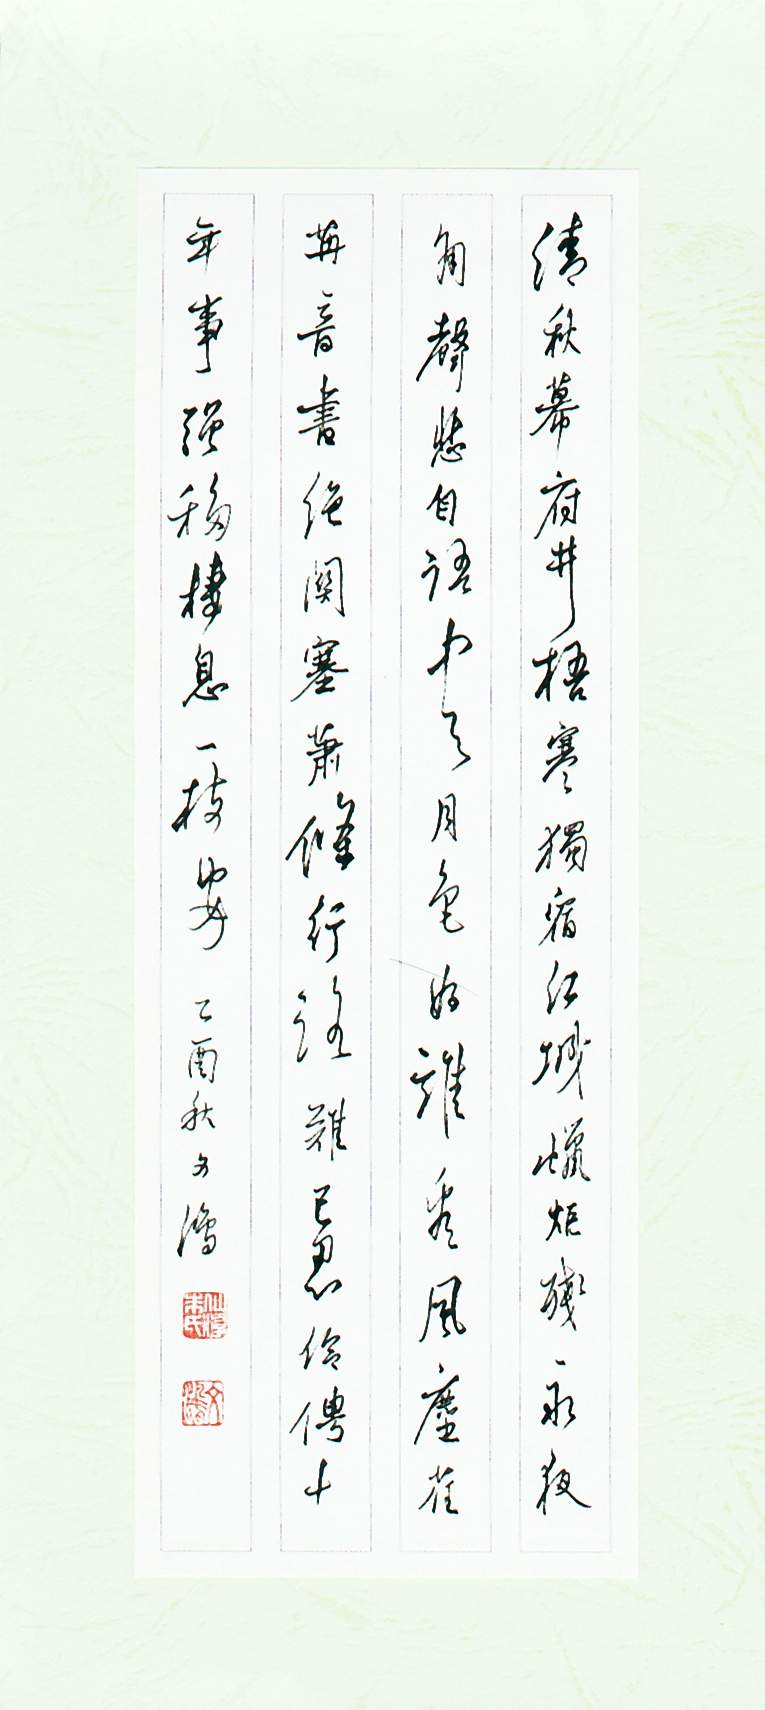 清秋幕府井梧寒獨宿江城蠟炬殘永夜
角聲悲自語中天月色好誰看風塵荏
苒音書絕關塞蕭條行路難已忍伶俜十
年事強移棲息一枝安 乙酉秋文鴻